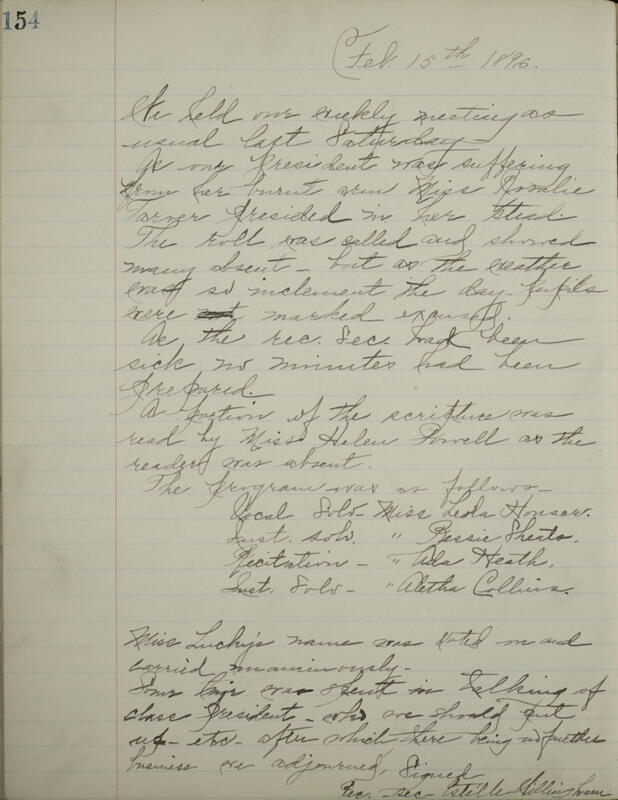 154
Feb. 15th 1896.
We held our weekly meeting as
usual last Saturday
As our President was suffering
from her burnt arm Miss Rosalie
Tarver presided in her stead.
The roll was called and showed
many absent - but as the weather
was so inclement the day-pupils
were marked excused.
As the rec. Sec. had been
sick no minutes had been
prepared.
A portion of the scripture was
read by Miss Helen Powell as the
reader was absent.
The program was as follows -
Vocal Solo - Miss Leola Houser.
Inst. solo. " Bessie Sheats.
Recitation - " Ada Heath.
Inst. Solo - " Aletha Collins.
Miss Lucky's name was voted on and
carried unanimously.
Some time was spent in talking of
class President - who we should put
up - etc - after which there being no further
business we adjourned, Signed
Rec. - sec Estelle